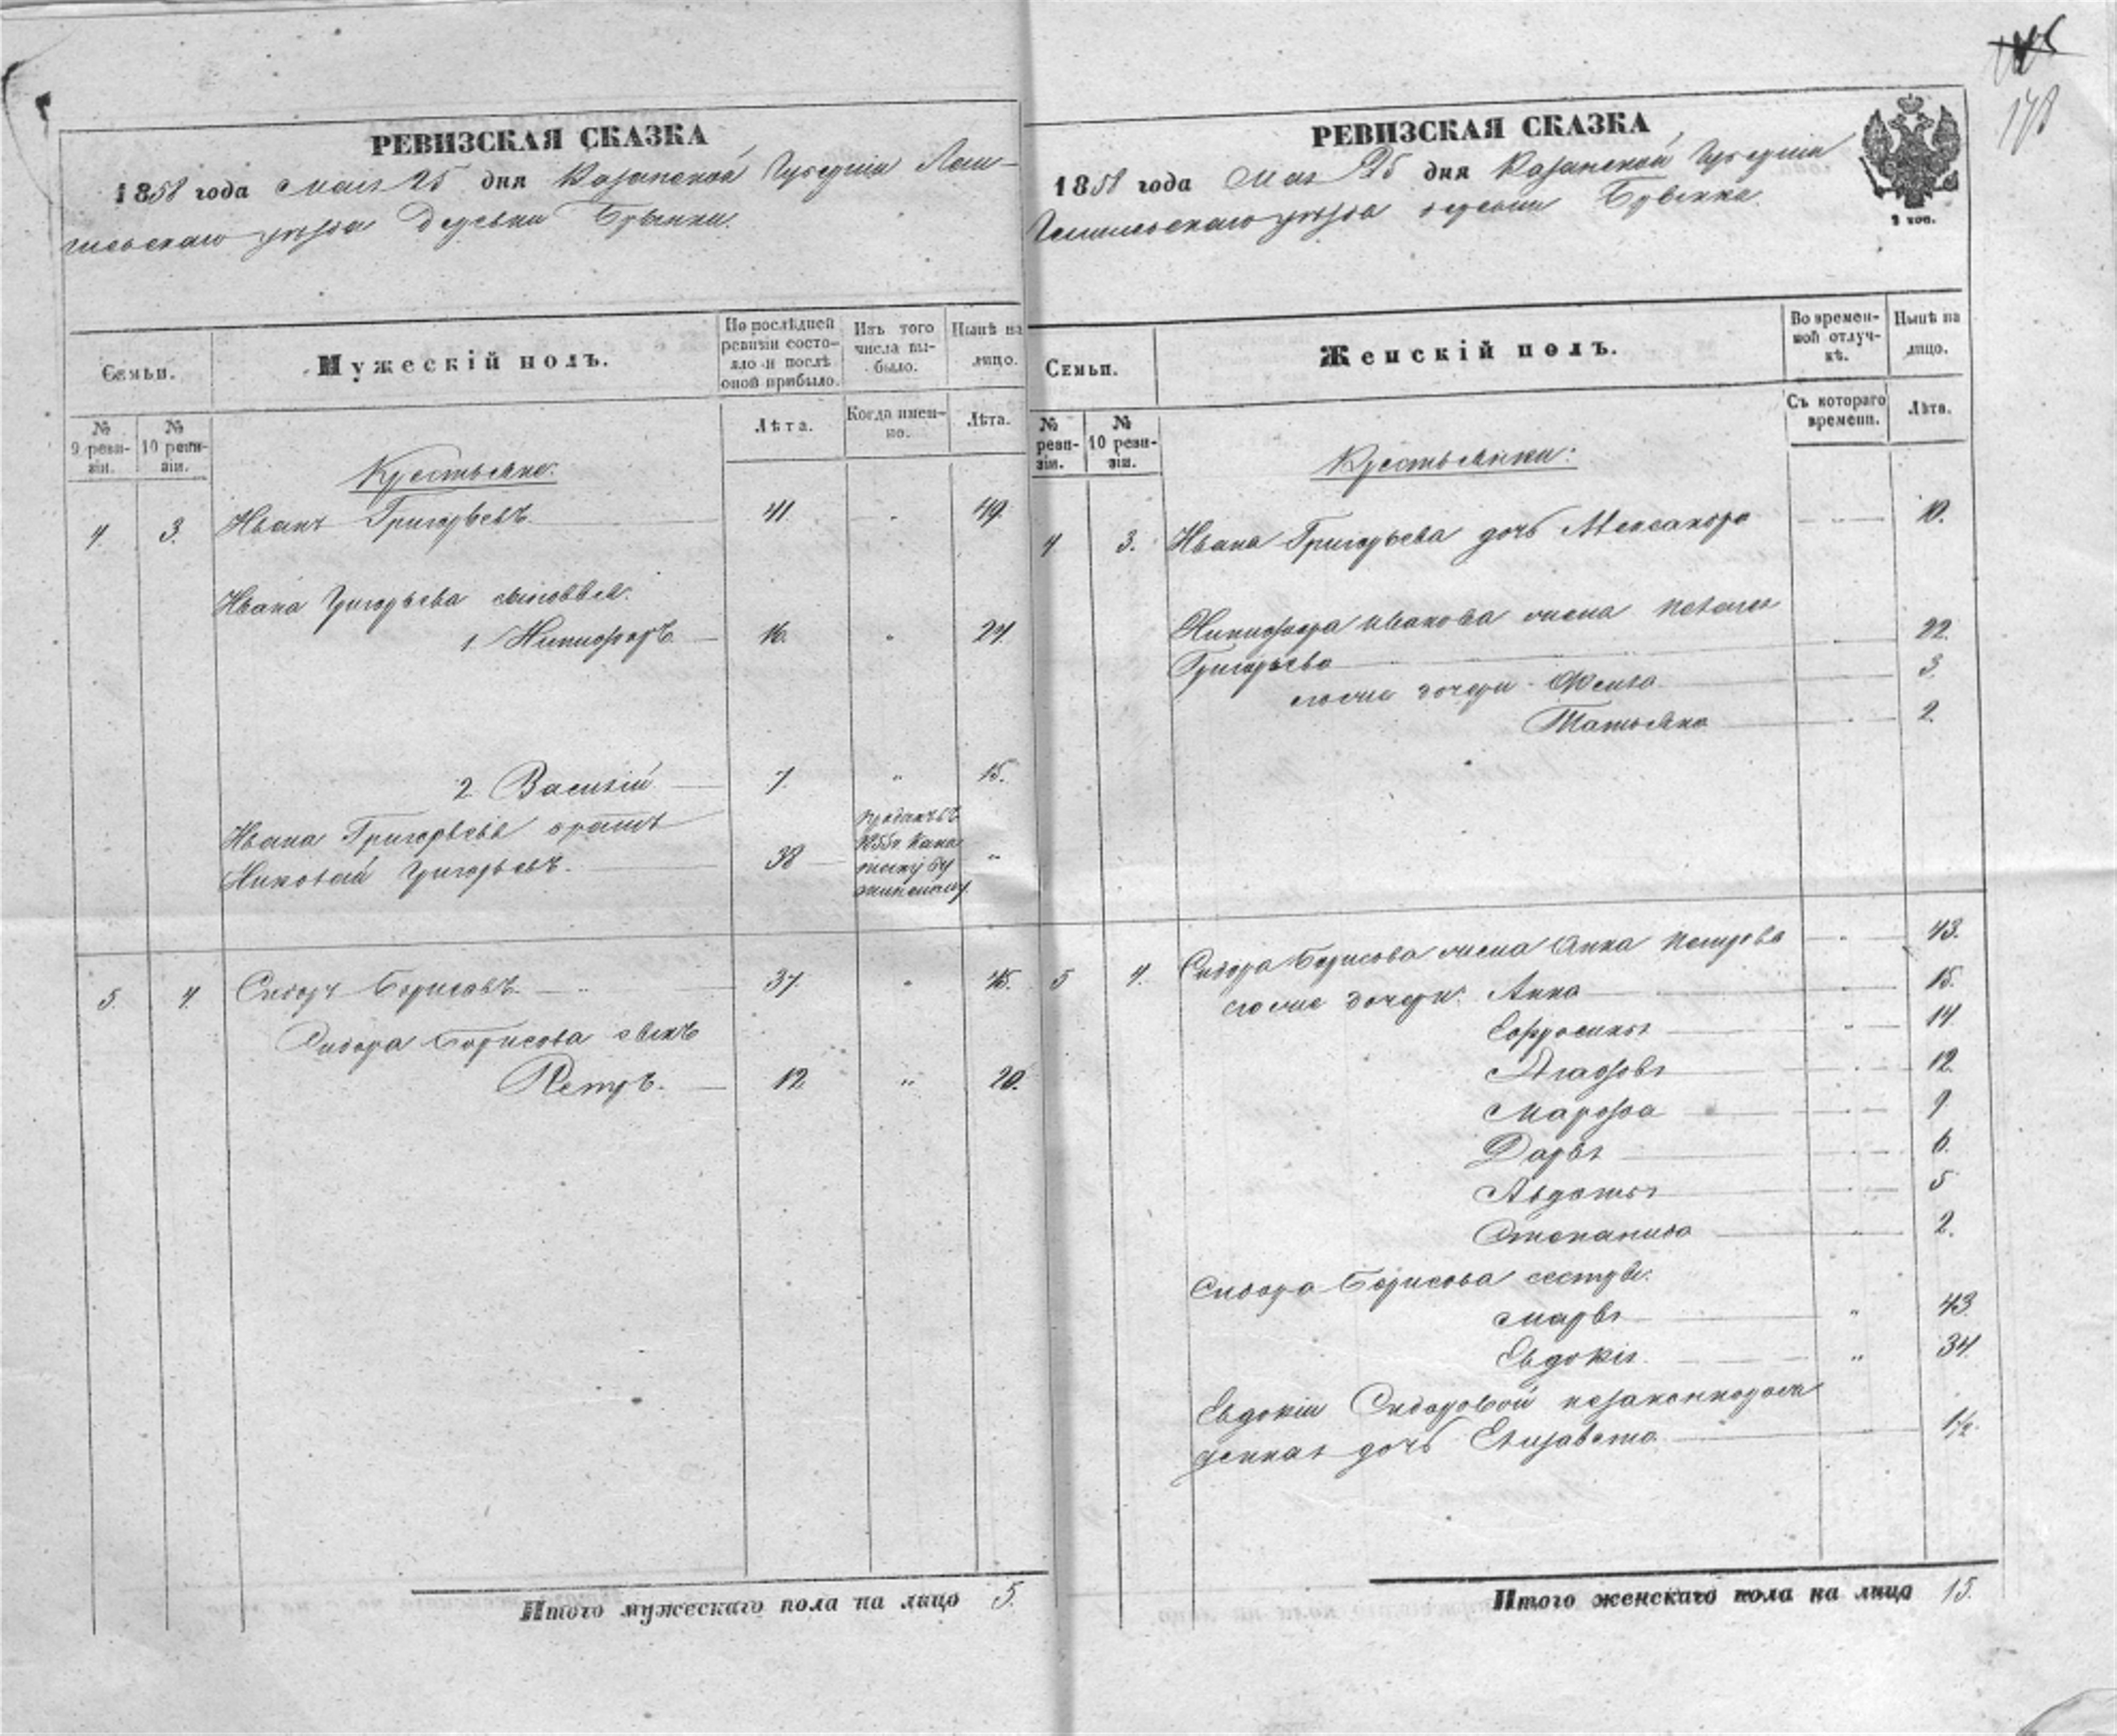 РЕВИЗСКАЯ СКАЗКА
1858 года мая 25 дня Казанской Губерніи Лаи-
шевскаго уѣзда Деревни
Семьи.
Мужескій полъ.
По послѣдней ревизіи состо-
яло и послѣ
оной прибыло.
Изъ того
числа вы-
было.
Нынѣ на
лицо.
№
9 реви-
зіи.
№
10 реви-
зіи.
Лѣта.
Когда имен-
но.
Лѣта.
Крестьяне:
4. 3. Иванъ Григорьевъ 41. „ 49.
Ивана Григорьева сыновья:
1 Никифоръ 16. „ 24.
2 Василій 7. „ 15.
Ивана Григорьева братъ
Николай Григорьевъ. 38 „
проданъ въ
1855 г.
5. 4. Сидоръ Борисовъ 37. „ 45.
Сидора Борисова сынъ
Петръ. 12 „ 20.
Итого мужескаго пола на лицо 5.
РЕВИЗСКАЯ СКАЗКА
1858 года мая 25 дня Казанской Губерніи
Лаишевскаго уѣзда деревни
3 коп.
178
Семьи.
Женскій полъ.
Во времен-
ной отлуч-
кѣ.
Нынѣ на
лицо.
№
реви-
зіи.
№
10 реви-
зіи.
Съ котораго
времени.
Лѣта.
Крестьянки:
4 3. Ивана Григорьева дочь Александра „ 10.
Никифора Иванова жена Пелагея
Григорьева „ 22.
его же дочери Фекла 3.
Татьяна „ 2.
5 4. Сидора Борисова жена Анна Петрова „ 43.
его же дочери: Анна „ 15.
Ефросинья „ 14
Агафья „ 12.
Марфа „ 9
Дарья „ 6.
Авдотья „ 5
Степанида „ 2.
Сидора Борисова сестры:
Марья „ 43.
Евдокія „ 34.
Евдокіи Сидоровой незаконнорож
денная дочь Елизавета 1/2.
Итого женскаго пола на лицо 15.